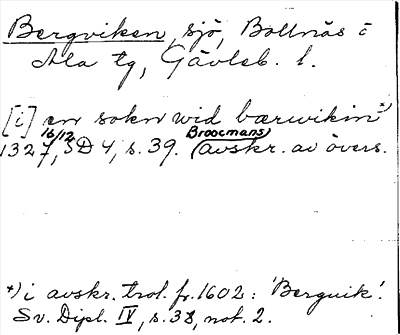 Bergviken, sjö, Bollnäs i
Ala tg, Gävleb. l.
[i] en sokn wid bærwikin *)
16/12 1327, SD 4, s. 39. (Broocmans avskr. av övers.
*) i avskr. trol. fr. 1602: 'Berguik'.
Sv. Dipl. IV, s. 38, not. 2.